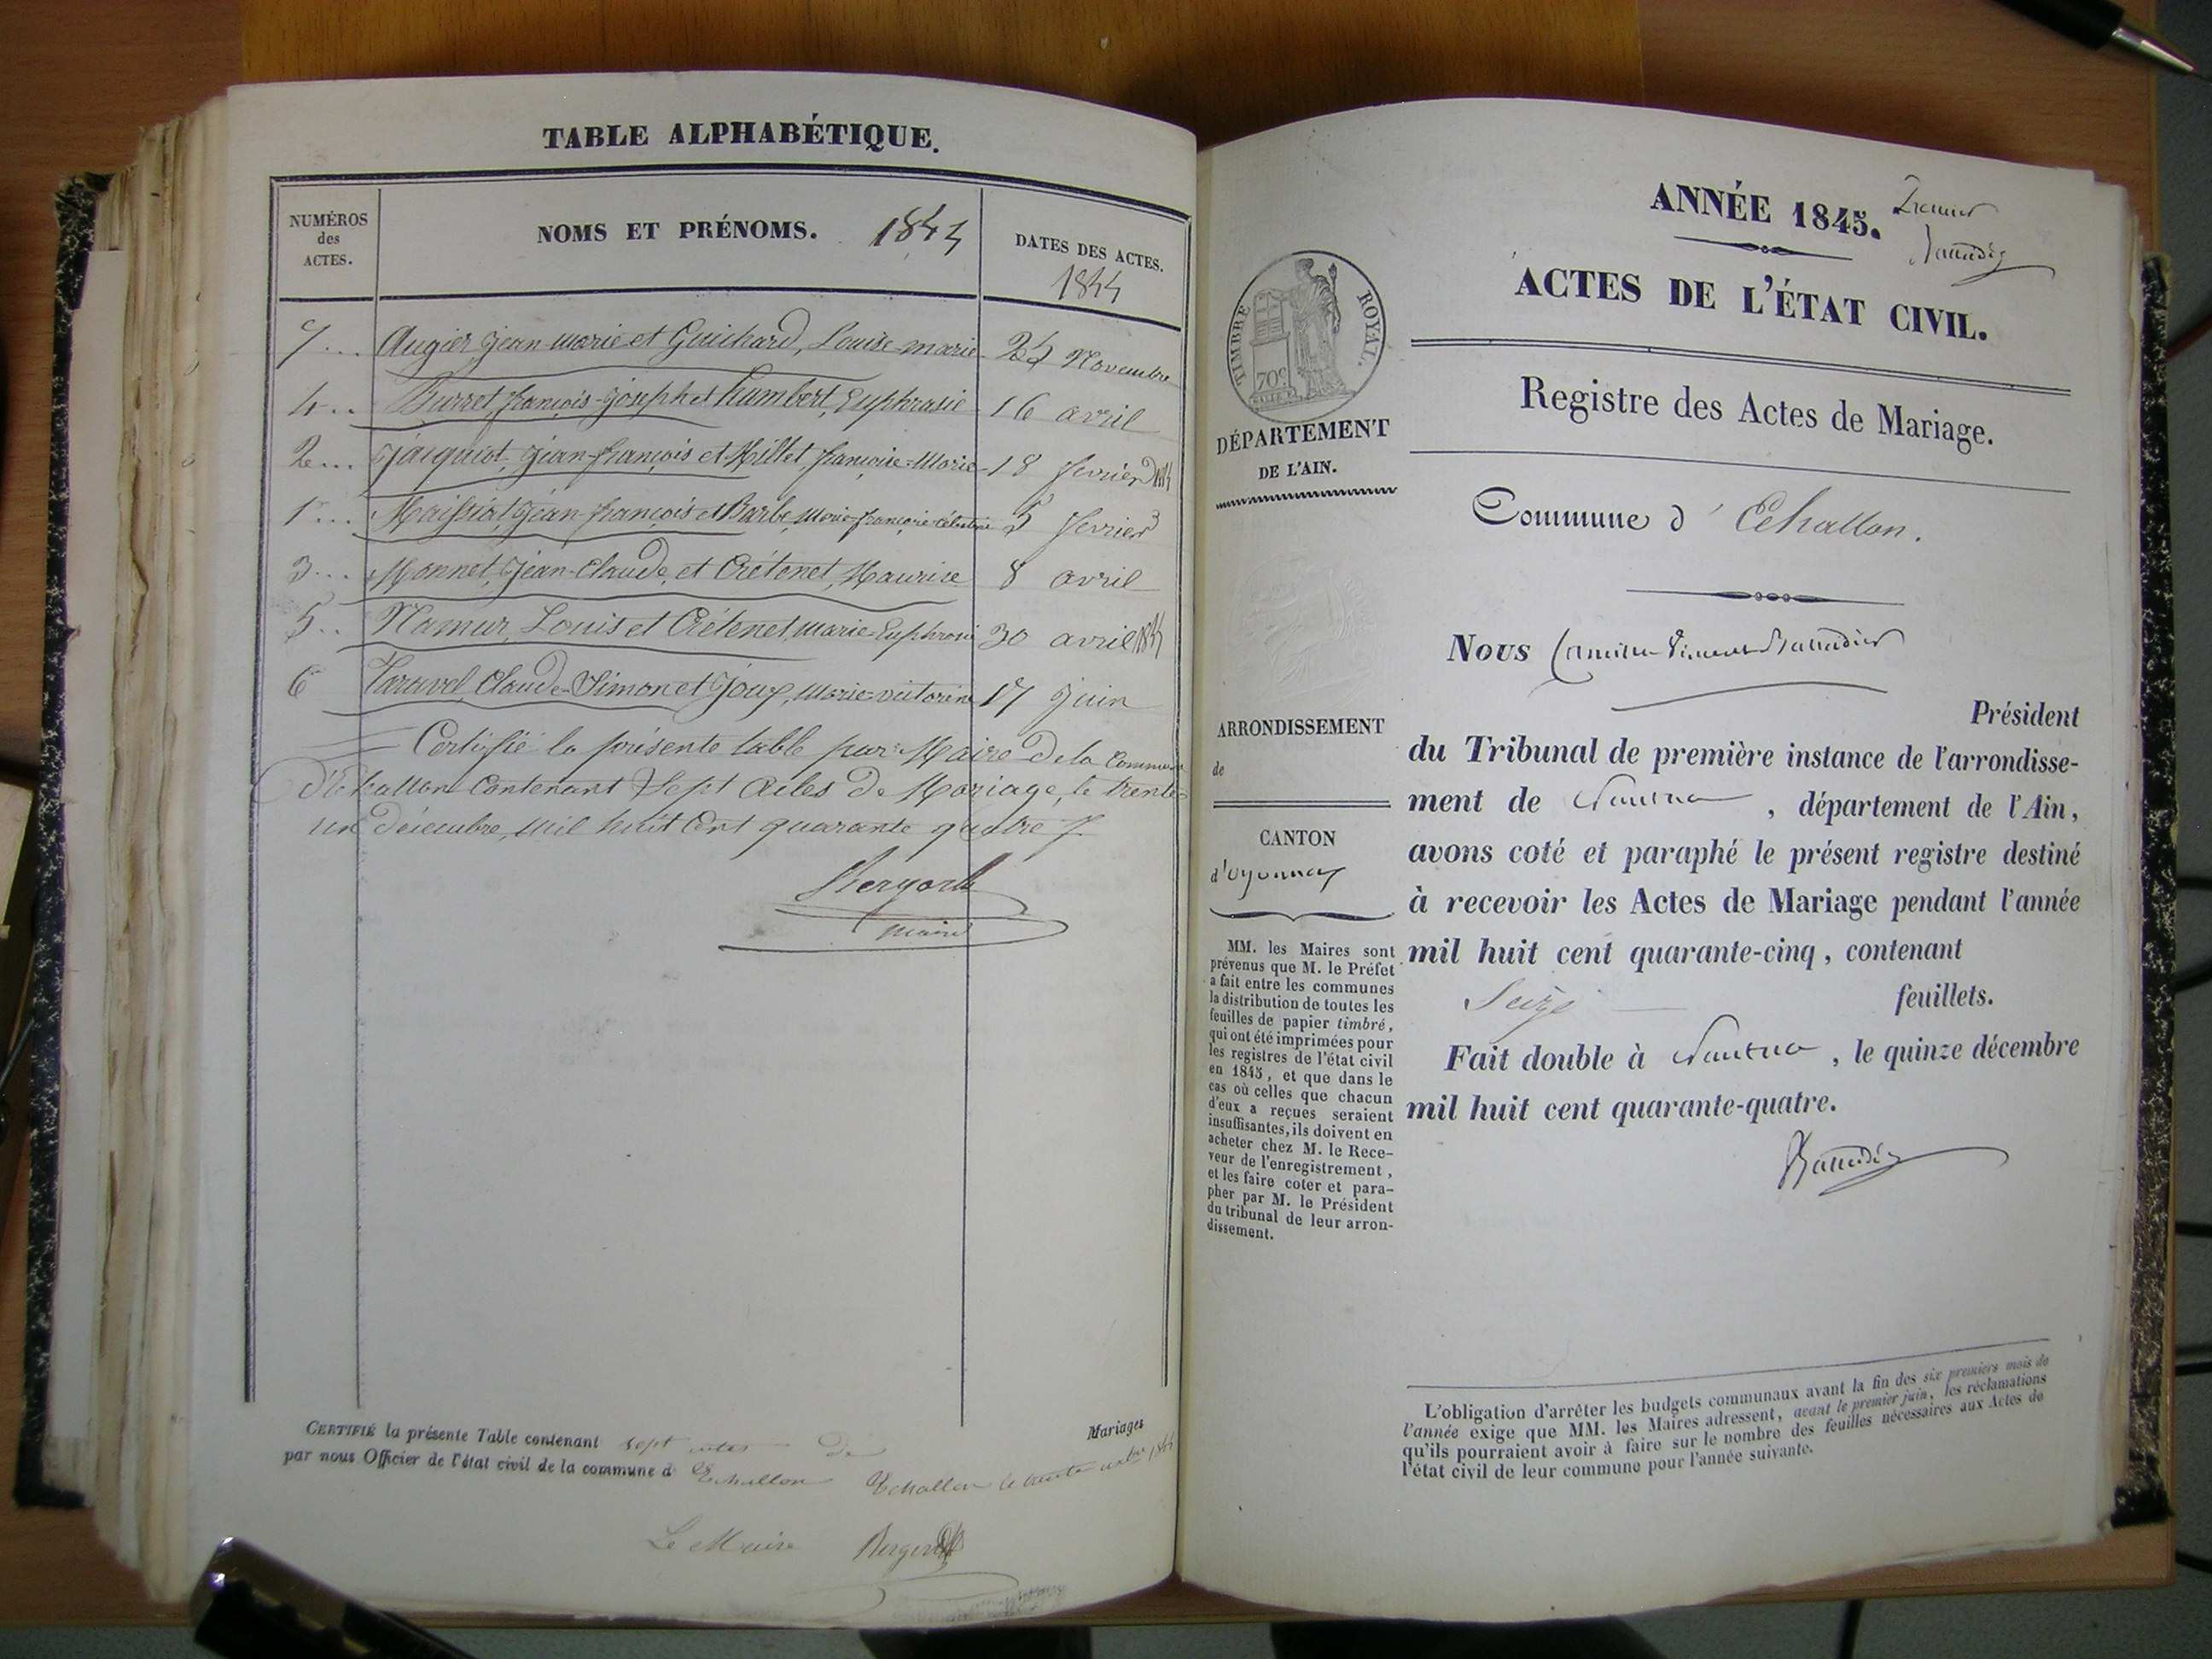 TABLE ALPHABÉTIQUE.
NUMÉROS
des
ACTES.
NOMS ET PRÉNOMS. 1844
DATES DES ACTES.
1844
7... Augier, jean-marie et Guichard, Louise-marie 24 Novembre
4.. Burret, françois-joseph et humbert, Euphrasie 16 avril
2... jacquiot, jean-françois et Millet, françoise-Marie 18 fevrier 1844
1... Maissiat, jean-françois et Barbe, Marie-françoise 5 fevrier
3... Monnet, jean-Claude, et Crétenet, Maurise 8 avril
5.. Namur, Louis et Crétenet, marie 30 avril 1844
6 Taravel, Claude-Simon et Joux, marie-victorine 17 juin
Certifié la présente table par Maire de la Commune
d'Echallon Contenant Sept Actes de Mariage, le trente
un décembre, mil huit Cent quarante quatre
maire
CERTIFIÉ la présente Table contenant sept actes de Mariages
par nous Officier de l'état civil de la commune d Echallon Echallon le trente 1844
Le Maire
ANNÉE 1845. Premier
ACTES DE L'ÉTAT CIVIL.
TIMBRE ROYAL.
70c
Registre des Actes de Mariage.
DÉPARTEMENT
DE L'AIN.
Commune d' Echallon.
Nous
Président
ARRONDISSEMENT
de
du Tribunal de première instance de l'arrondisse-
ment de Nantua, département de l'Ain,
avons coté et paraphé le présent registre destiné
à recevoir les Actes de Mariage pendant l'année
mil huit cent quarante-cinq, contenant
Seize feuillets.
Fait double à Nantua, le quinze décembre
mil huit cent quarante-quatre.
CANTON
d'Oyonnax
MM. les Maires sont
prévenus que M. le Préfet
a fait entre les communes
la distribution de toutes les
feuilles de papier timbré,
qui ont été imprimées pour
les registres de l'état civil
en 1845, et que dans le
cas où celles que chacun
d'eux a reçues seraient
insuffisantes, ils doivent en
acheter chez M. le Rece-
veur de l'enregistrement,
et les faire coter et para-
pher par M. le Président
du tribunal de leur arron-
dissement.
L'obligation d'arrêter les budgets communaux avant la fin des six premiers mois de
l'année exige que MM. les Maires adressent, avant le premier juin, les réclamations
qu'ils pourraient avoir à faire sur le nombre des feuilles nécessaires aux Actes de
l'état civil de leur commune pour l'année suivante.